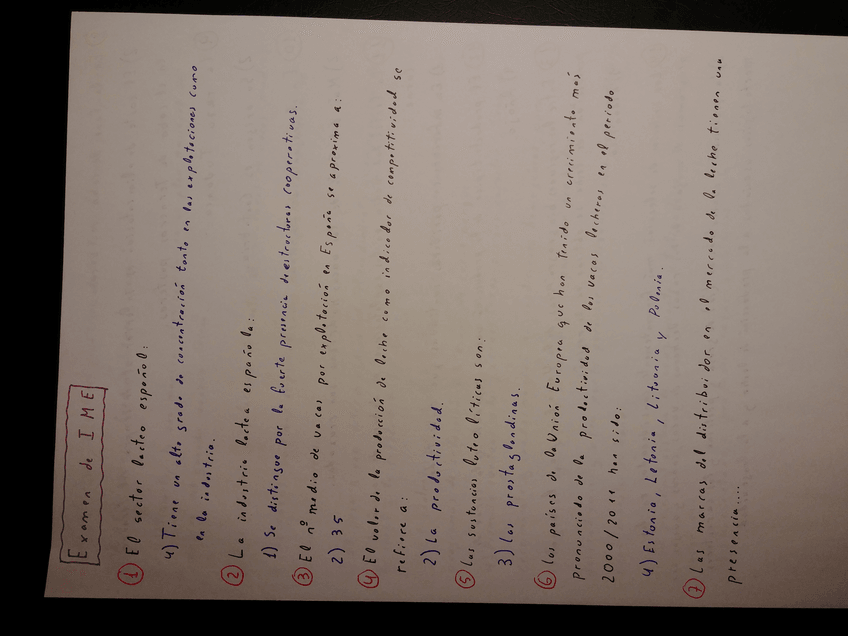 Examen de IME
① El sector lacteo español:
4) Tiene un alto grado de concentración tanto en las explotaciones como
en la industria.
② La industria lactea española:
1) Se distingue por la fuerte presencia de estructuras cooperativas.
③ El nº medio de vacas por explotación en España se aproxima a:
2) 35
④ El valor de la producción de leche como indicador de competitividad se
refiere a:
2) La productividad.
⑤ Las sustancias luteolíticas son:
3) Las prostaglandinas.
⑥ Los paises de la Unión Europea que han tenido un crecimiento mas
pronunciado de la productividad de las vacas lecheras en el periodo
2000/2011 han sido:
4) Estonia, Letonia, Lituania y Polonia.
⑦ Las marcas del distribuidor en el mercado de la leche tienen una
presencia....